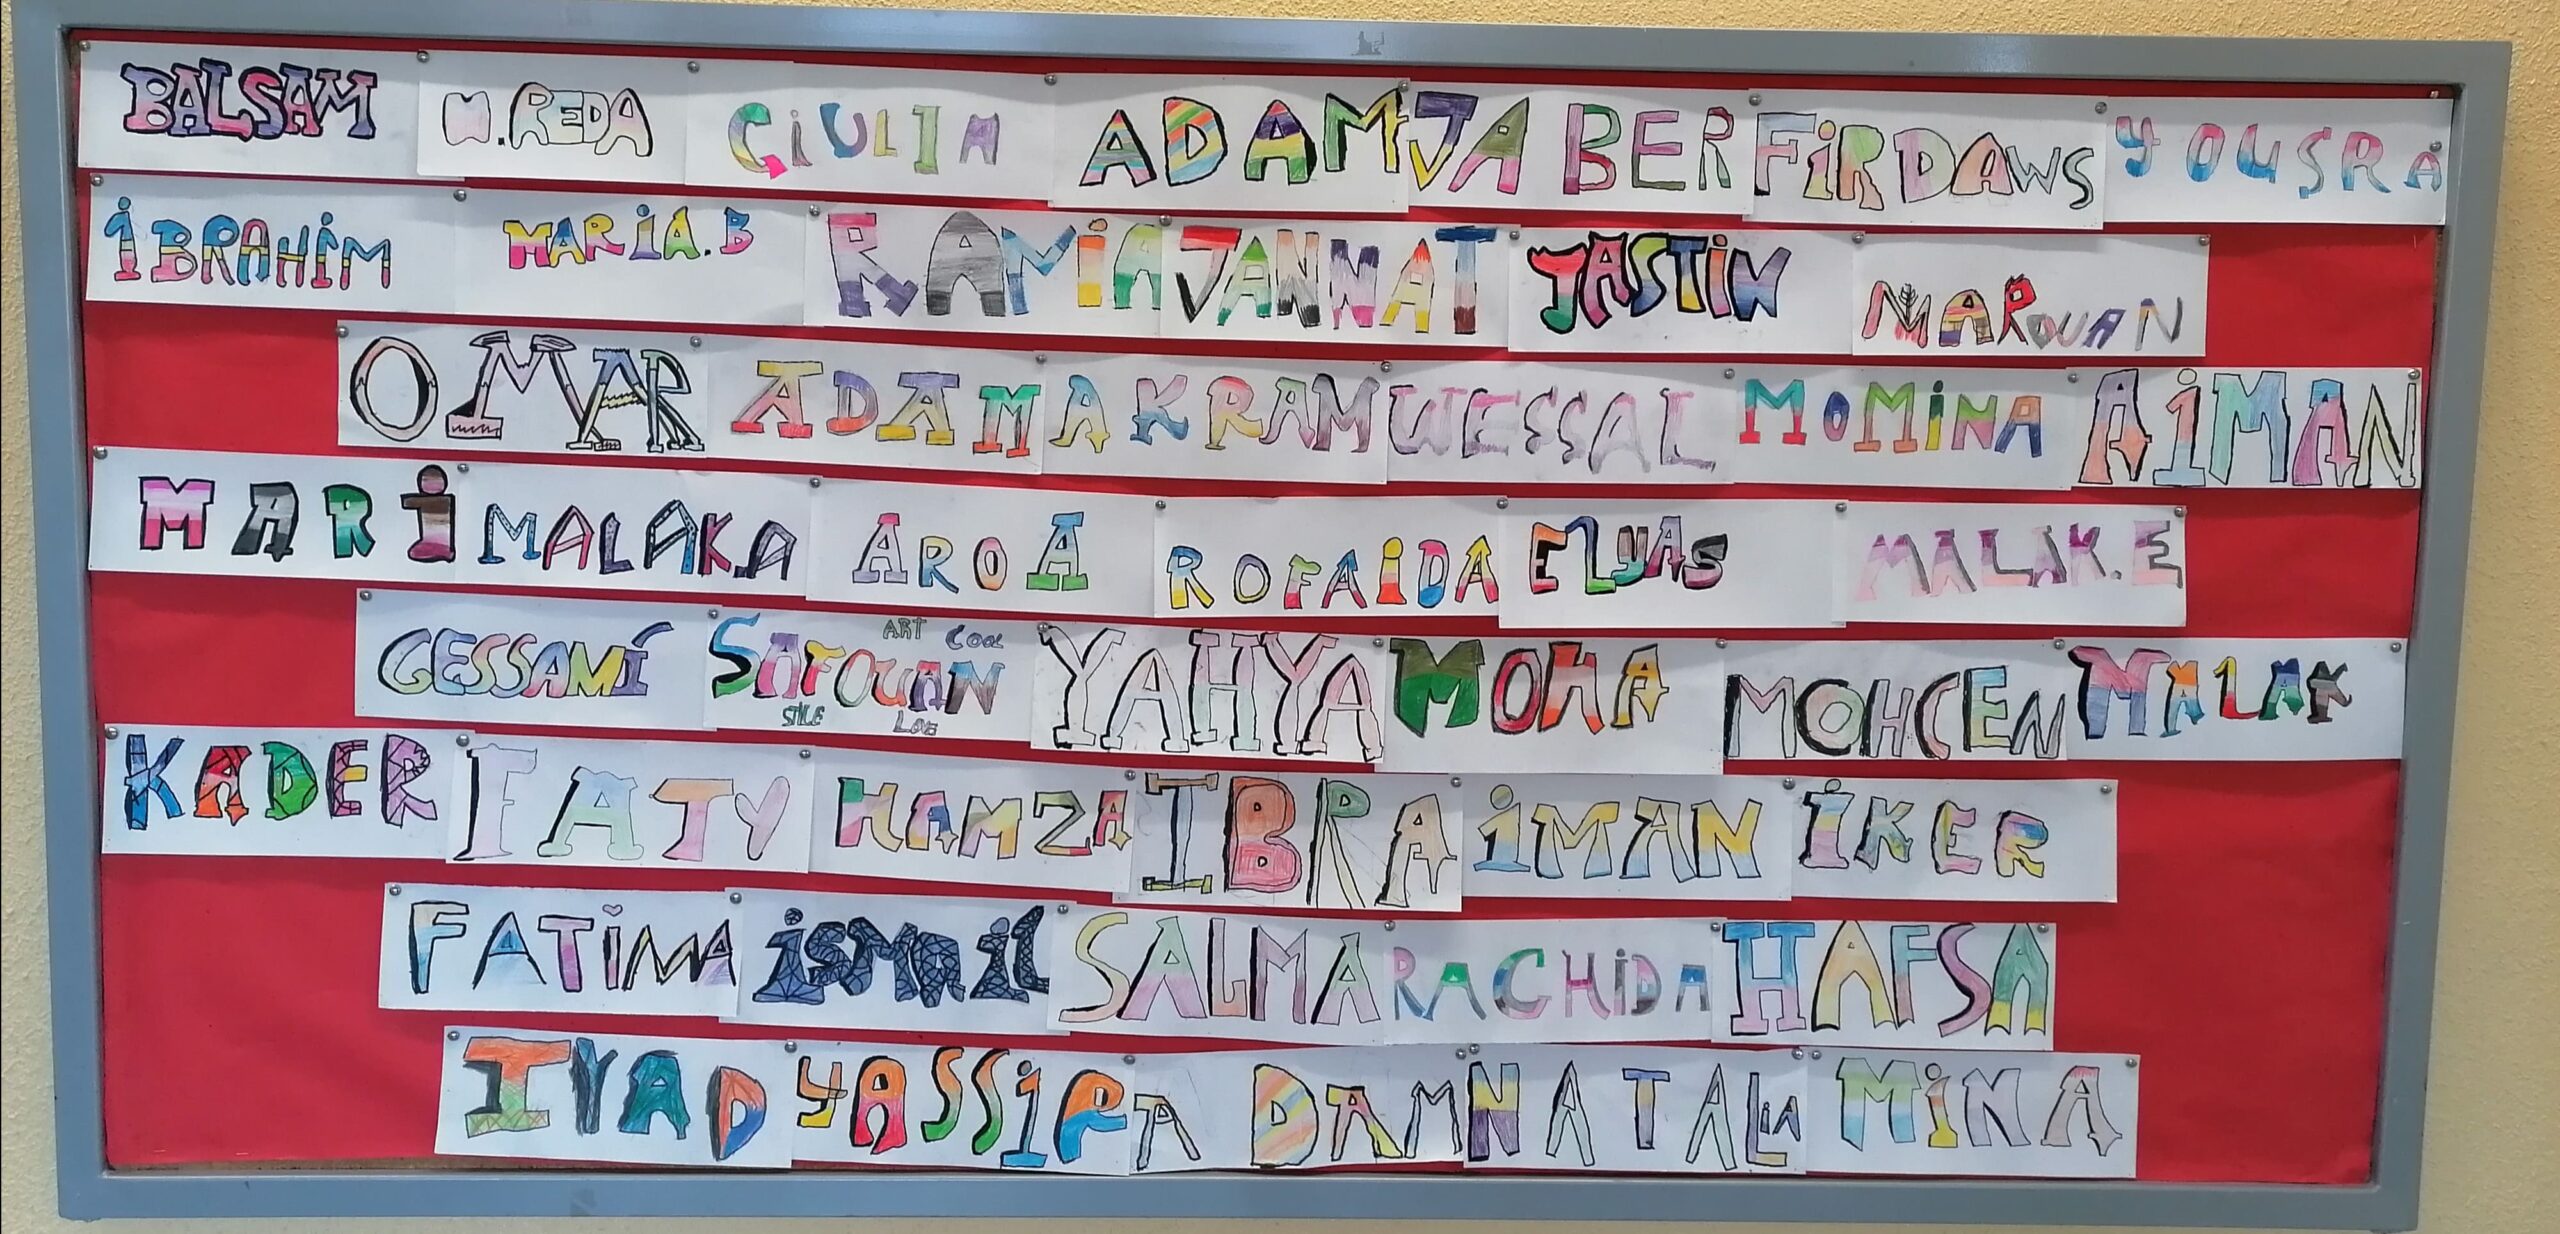 BALSAM M.REDA GIULIA ADAM JABER FIRDAWS YOUSRA
IBRAHIM MARIA.B RAMIA JANNAT JASTIN MAROUAN
OMAR ADAM AKRAM WESSAL MOMINA AIMAN
MARI MALAKA AROA ROFAIDA ELYAS MALAK.E
GESSAMÍ SAFOUAN ART COOL STYLE YAHYA MOHA MOHCEN MALAK
KADER FATY HAMZA IBRA IMAN IKER
FATIMA ISMAIL SALMA RACHIDA HAFSA
IYAD YASSIR ADAM NATALIA MINA